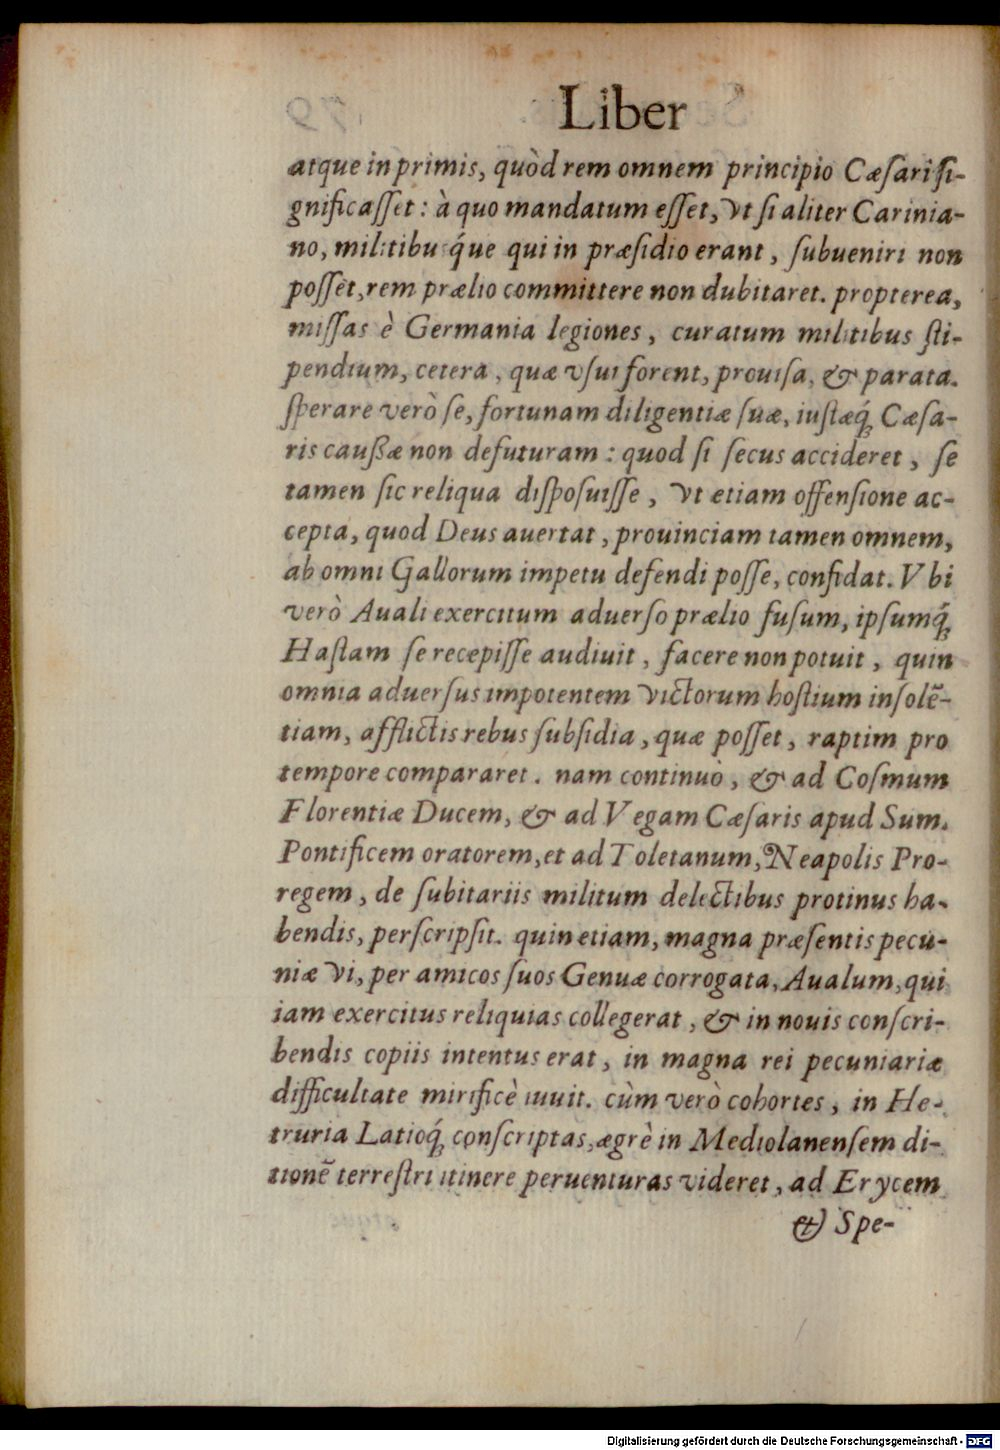 Liber
atque in primis, quòd rem omnem principio Cæſari ſi-
gnificaſſet: à quo mandatum eſſet, vt ſi aliter Carinia-
no, militibuſq́ue qui in præſidio erant, ſubueniri non
poſſet, rem prælio committere non dubitaret. propterea,
miſſas è Germania legiones, curatum militibus ſti-
pendium, cetera, quæ vſui forent, prouiſa, & parata.
ſperare verò ſe, fortunam diligentiæ ſuæ, iuſtæq́; Cæſa-
ris cauſſæ non defuturam: quod ſi ſecus accideret, ſe
tamen ſic reliqua diſpoſuiſſe, vt etiam offenſione ac-
cepta, quod Deus auertat, prouinciam tamen omnem,
ab omni Gallorum impetu defendi poſſe, confidat. Vbi
verò Auali exercitum aduerſo prælio fuſum, ipſumq́;
Haſtam ſe recepiſſe audiuit, facere non potuit, quin
omnia aduerſus impotentem victorum hoſtium inſolē-
tiam, afflictis rebus ſubſidia, quæ poſſet, raptim pro
tempore compararet. nam continuò, & ad Coſmum
Florentiæ Ducem, & ad Vegam Cæſaris apud Sum.
Pontificem oratorem, et ad Toletanum, Neapolis Pro-
regem, de ſubitariis militum delectibus protinus ha-
bendis, perſcripſit. quin etiam, magna præſentis pecu-
niæ vi, per amicos ſuos Genuæ corrogata, Aualum, qui
iam exercitus reliquias collegerat, & in nouis conſcri-
bendis copiis intentus erat, in magna rei pecuniariæ
difficultate mirificè iuuit. cùm verò cohortes, in He-
truria Latioq́; conſcriptas, ægrè in Mediolanenſem di-
tionē terreſtri itinere peruenturas videret, ad Erycem
& Spe-
Digitalisierung gefördert durch die Deutsche Forschungsgemeinschaft - DFG